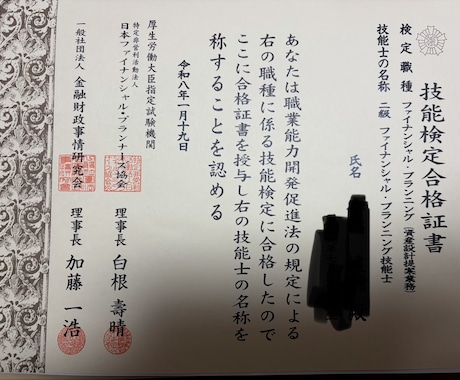 技能検定合格証書
検定職種 ファイナンシャル・プランニング(資産設計提案業務)
技能士の名称 二級 ファイナンシャル・プランニング技能士
氏名
あなたは職業能力開発促進法の規定による
右の職種に係る技能検定に合格したので
ここに合格証書を授与し右の技能士の名称を
称することを認める
令和八年一月十九日
厚生労働大臣指定試験機関
特定非営利活動法人
日本ファイナンシャル・プランナーズ協会 理事長 白根壽晴
一般社団法人 金融財政事情研究会 理事長 加藤一浩